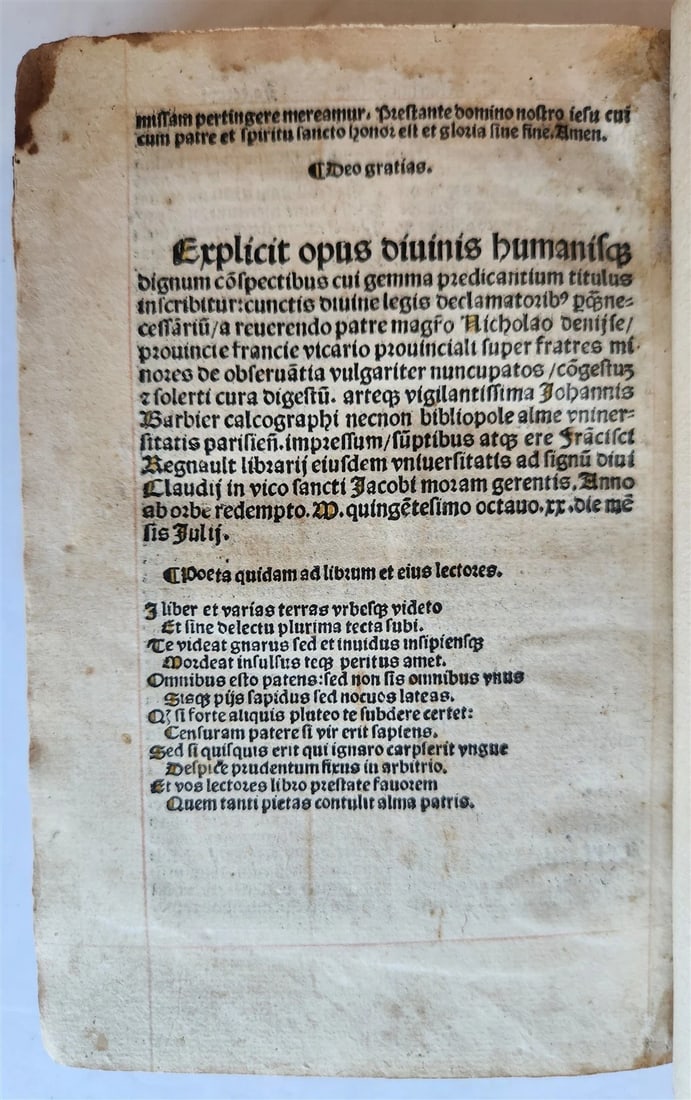 missam pertingere mereamur. Prestante domino nostro iesu cui
cum patre et spiritu sancto honor est et gloria sine fine. Amen.
¶Deo gratias.
Explicit opus diuinis humanisqꝫ
dignum cõspectibus cui gemma predicantium titulus
inscribitur: cunctis diuine legis declamatoribꝰ ꝑq̃ꝫne-
cessãriũ/a reuerendo patre magr̃o Nicholao denijse/
prouincie francie vicario prouinciali super fratres mi-
nores de obseruãtia vulgariter nuncupatos/cõgestuꝫ
⁊ solerti cura digestũ. arteqꝫ vigilantissima Johannis
Barbier calcographi necnon bibliopole alme vniuer-
sitatis parisieñ. impressum/sũptibus atqꝫ ere Frãcisci
Regnault librarij eiusdem vniuersitatis ad signũ diui
Claudij in vico sancti Jacobi moram gerentis. Anno
ab orbe redempto. M. quingẽtesimo octauo. xx. die mẽ
sis Julij.
¶Poeta quidam ad librum et eius lectores.
I liber et varias terras vrbesqꝫ videto
Et sine delectu plurima tecta subi.
Te videat gnarus sed et inuidus insipiensqꝫ
Mordeat insulsus teqꝫ peritus amet.
Omnibus esto patens: sed non sis omnibus vnus
Sisqꝫ pijs sapidus sed nocuos lateas.
Qꝫ si forte aliquis pluteo te subdere certet:
Censuram patere si vir erit sapiens.
Sed si quisquis erit qui ignaro carpserit vngue
Despice prudentum fixus in arbitrio.
Et vos lectores libro prestate fauorem
Quem tanti pietas contulit alma patris.